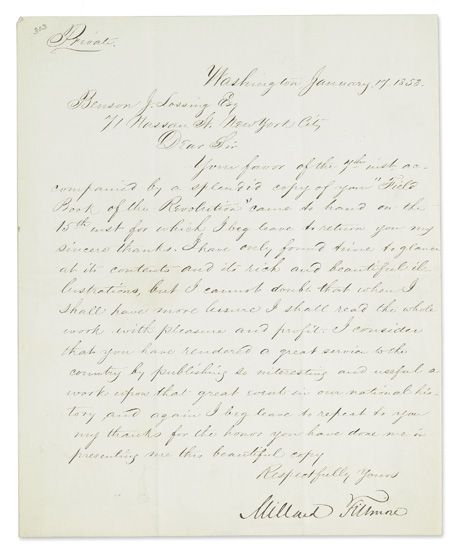 303
Private.
Washington January 17. 1853.
Benson J. Lossing Esq
71 Nassau St. New York City
Dear Sir
Your favor of the 7th inst ac-
companied by a splendid copy of your "Field
Book of the Revolution" came to hand on the
15th inst for which I beg leave to return you my
sincere thanks. I have only found time to glance
at its contents and its rich and beautiful il-
lustrations, but I cannot doubt that when I
shall have more leisure I shall read the whole
work with pleasure and profit. I consider
that you have rendered a great service to the
country by publishing so interesting and useful a
work upon that great event in our national his-
tory and again I beg leave to repeat to you
my thanks for the honor you have done me in
presenting me this beautiful copy
Respectfully Yours
Millard Fillmore